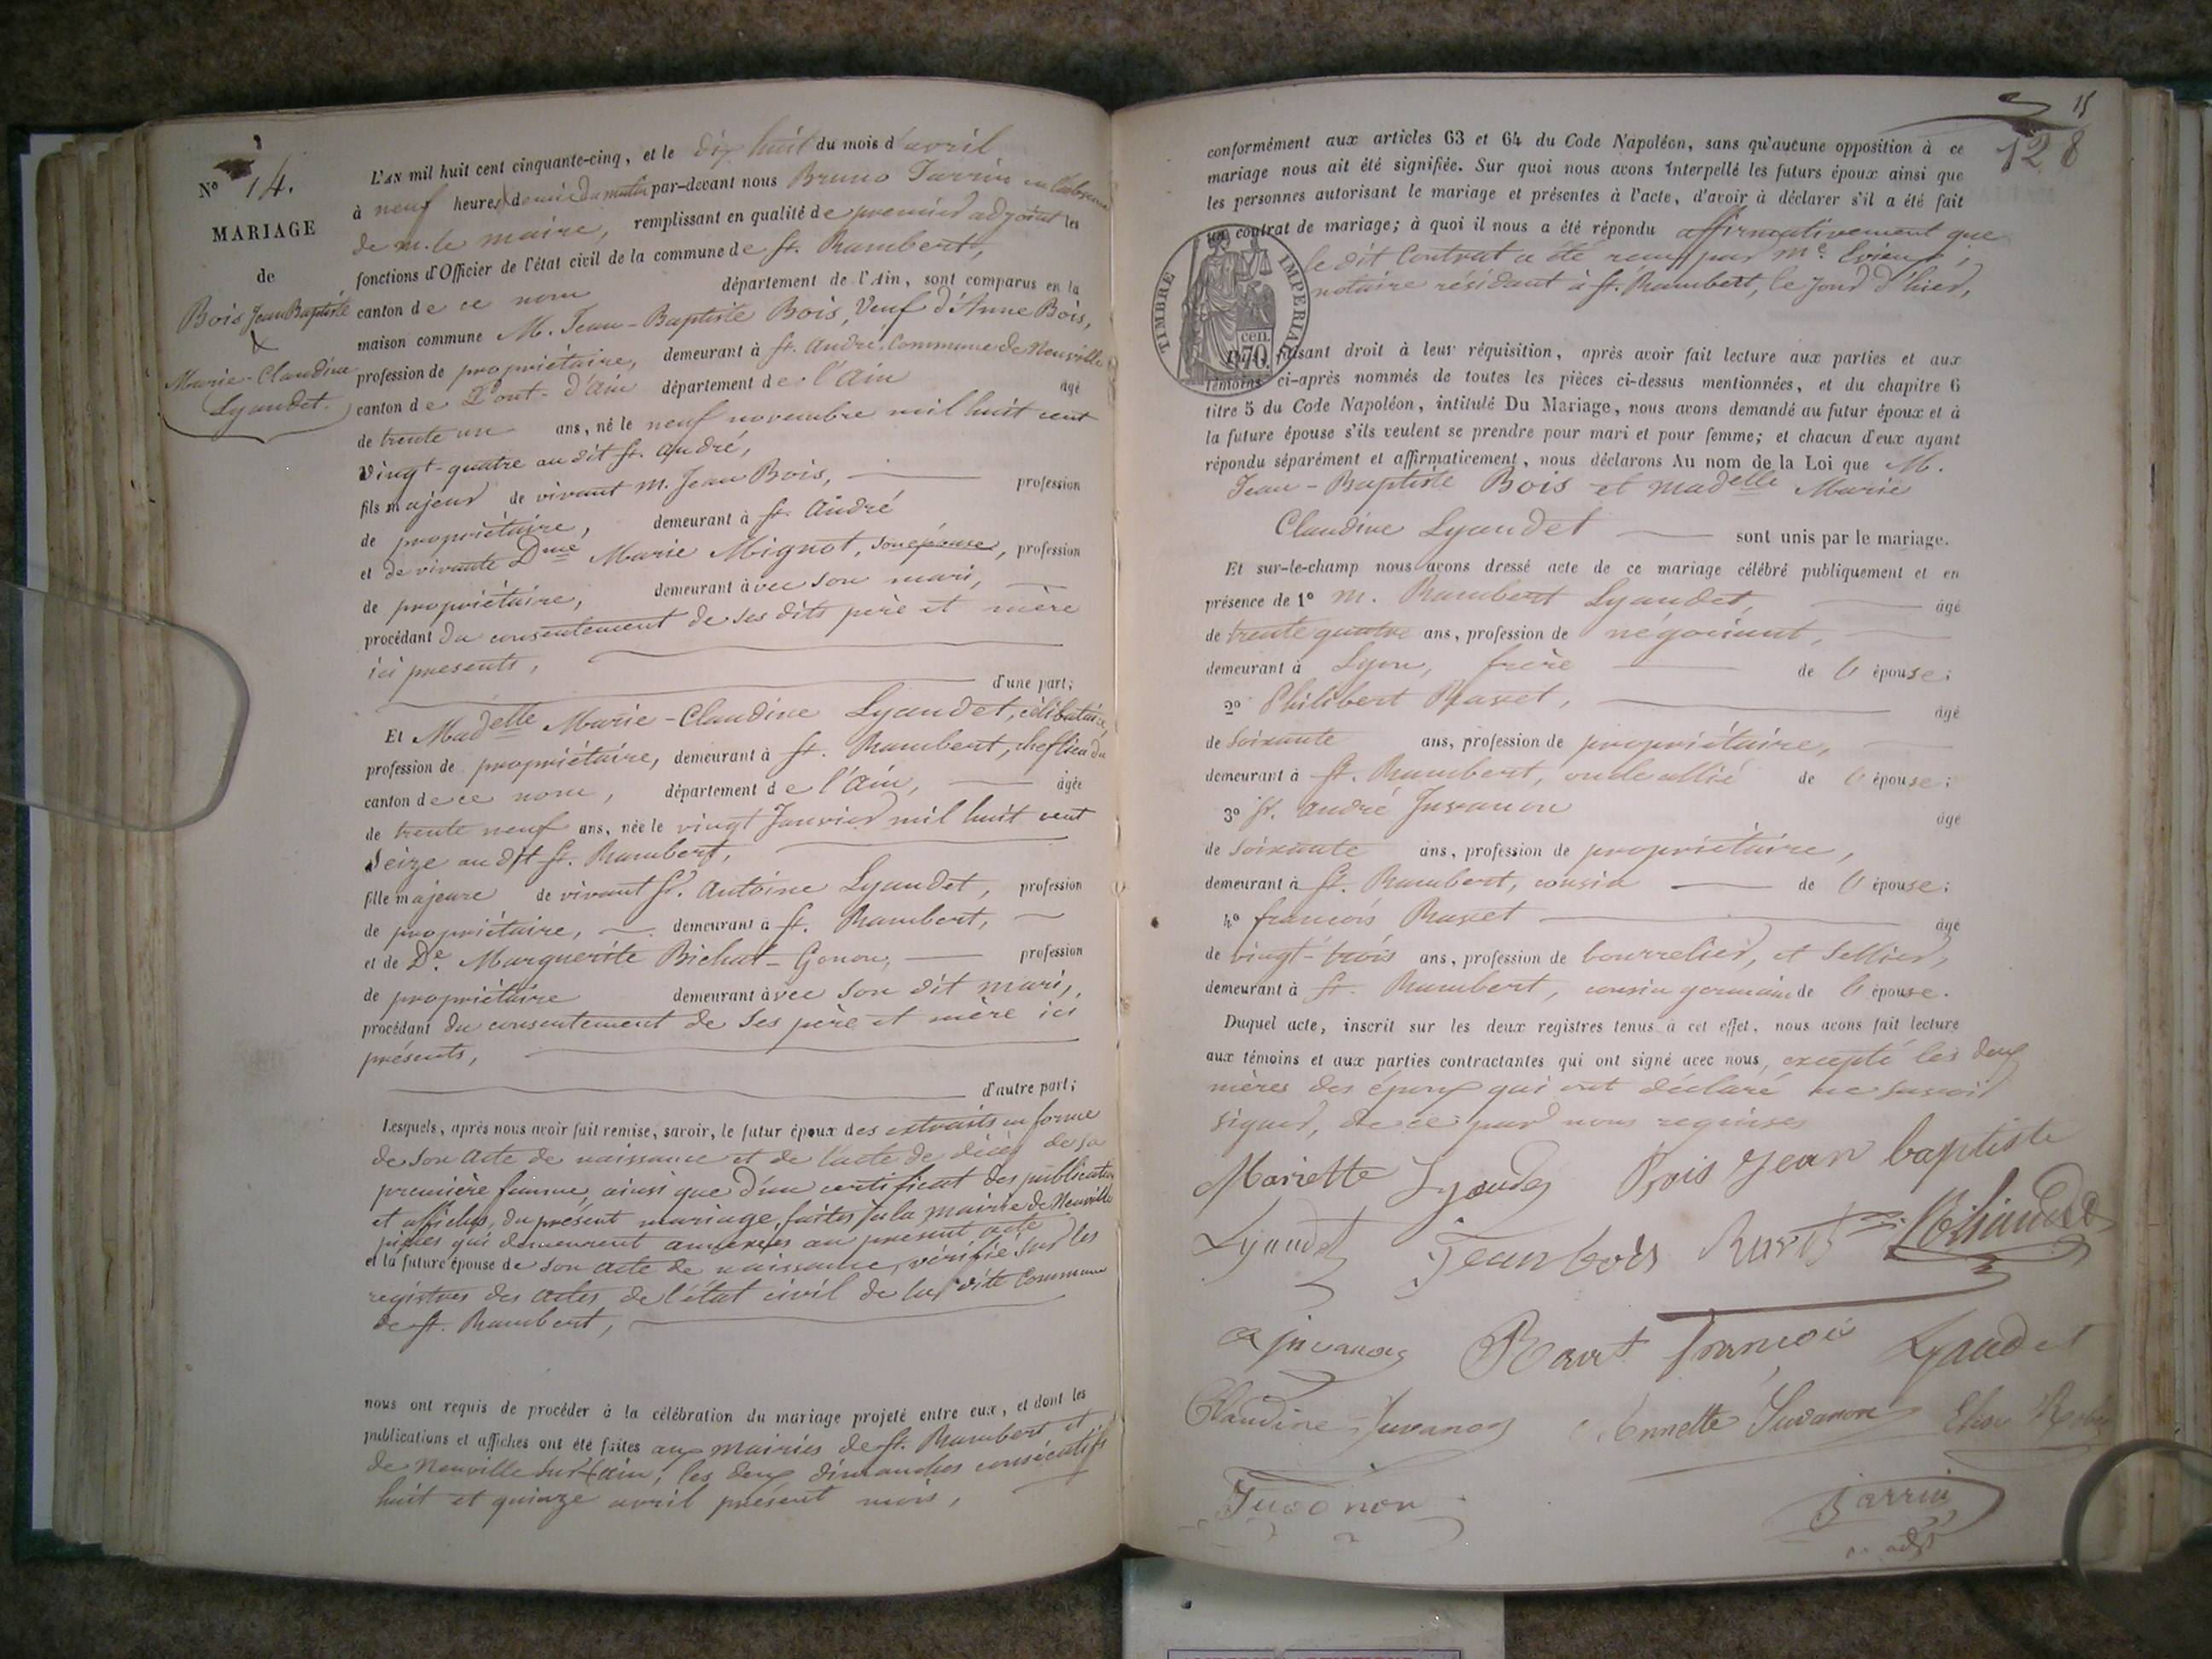 N° 14.
MARIAGE
de
Bois Jean Baptiste
&
Marie-Claudine
Lyaudet.
L'AN mil huit cent cinquante-cinq, et le dix huit du mois d'avril
à neuf heures & demie du matin par-devant nous Bruno Jarrin en l'absence
de m. le maire, remplissant en qualité de premier adjoint les
fonctions d'Officier de l'état civil de la commune de St. Rambert,
canton de ce nom département de l'Ain, sont comparus en la
maison commune M. Jean-Baptiste Bois, Veuf d'Anne Bois,
profession de propriétaire, demeurant à St. André, Commune de Neuville
canton de Pont-d'Ain département de l'Ain âgé
de trente un ans, né le neuf novembre mil huit cent
vingt-quatre au dit St. André,
fils majeur de vivant m. Jean Bois, profession
de propriétaire, demeurant à St. André
et de vivante Dme Marie Mignot, son épouse, profession
de propriétaire, demeurant avec son mari,
procédant du consentement de ses dits père et mère
ici presents,
d'une part;
Et Madelle Marie-Claudine Lyaudet, célibataire,
profession de propriétaire, demeurant à St. Rambert, chef lieu du
canton de ce nom, département de l'Ain, âgée
de trente neuf ans, née le vingt Janvier mil huit cent
seize au dit St. Rambert,
fille majeure de vivant Sr. Antoine Lyaudet, profession
de propriétaire, demeurant à St. Rambert,
et de De. Marguerite Bichat-Gonon, profession
de propriétaire demeurant avec son dit mari,
procédant du consentement de ses père et mère ici
présents,
d'autre part;
Lesquels, après nous avoir fait remise, savoir, le futur époux des extraits en forme
de son acte de naissance et de l'acte de décès de sa
première femme, ainsi que d'un certificat des publications
et affiches, du présent mariage, faites à la mairie de Neuville
pièces qui demeurent annexées au présent acte
et la future épouse de son acte de naissance, vérifié sur les
registres des actes de l'état civil de la dite Commune
de St. Rambert,
nous ont requis de procéder à la célébration du mariage projeté entre eux, et dont les
publications et affiches ont été faites aux mairies de St. Rambert et
de Neuville sur Ain, les deux dimanches consécutifs
huit et quinze avril présent mois,
15
128
conformément aux articles 63 et 64 du Code Napoléon, sans qu'aucune opposition à ce
mariage nous ait été signifiée. Sur quoi nous avons interpellé les futurs époux ainsi que
les personnes autorisant le mariage et présentes à l'acte, d'avoir à déclarer s'il a été fait
un contrat de mariage; à quoi il nous a été répondu affirmativement que
le dit Contrat a été reçu par Me.
notaire résidant à St. Rambert, le jour d'hier,
TIMBRE IMPERIAL
cen.
70.
faisant droit à leur réquisition, après avoir fait lecture aux parties et aux
témoins ci-après nommés de toutes les pièces ci-dessus mentionnées, et du chapitre 6
titre 5 du Code Napoléon, intitulé Du Mariage, nous avons demandé au futur époux et à
la future épouse s'ils veulent se prendre pour mari et pour femme; et chacun d'eux ayant
répondu séparément et affirmativement, nous déclarons Au nom de la Loi que M.
Jean-Baptiste Bois et madelle Marie
Claudine Lyaudet sont unis par le mariage.
Et sur-le-champ nous avons dressé acte de ce mariage célébré publiquement et en
présence de 1° m. Rambert Lyaudet, âgé
de trente quatre ans, profession de négociant,
demeurant à Lyon, frère de l'épouse;
2° Philibert Ravet, âgé
de soixante ans, profession de propriétaire,
demeurant à St. Rambert, oncle allié de l'épouse;
3° Sr. André Juvanon âgé
de soixante ans, profession de propriétaire,
demeurant à St. Rambert, cousin de l'épouse;
4° françois Ravet âgé
de vingt-trois ans, profession de bourrelier, et sellier,
demeurant à St. Rambert, cousin germain de l'épouse.
Duquel acte, inscrit sur les deux registres tenus à cet effet, nous avons fait lecture
aux témoins et aux parties contractantes qui ont signé avec nous, excepté les deux
mères des époux qui ont déclaré ne savoir
signer, de ce par nous requises
Mariette Lyaudet Bois Jean baptiste
Lyaudet Jean bois Ravet
a juvanon Ravet françois Lyaudet
Claudine Juvanon Annette Juvanon Elise
Juvanon Jarrin
adjt